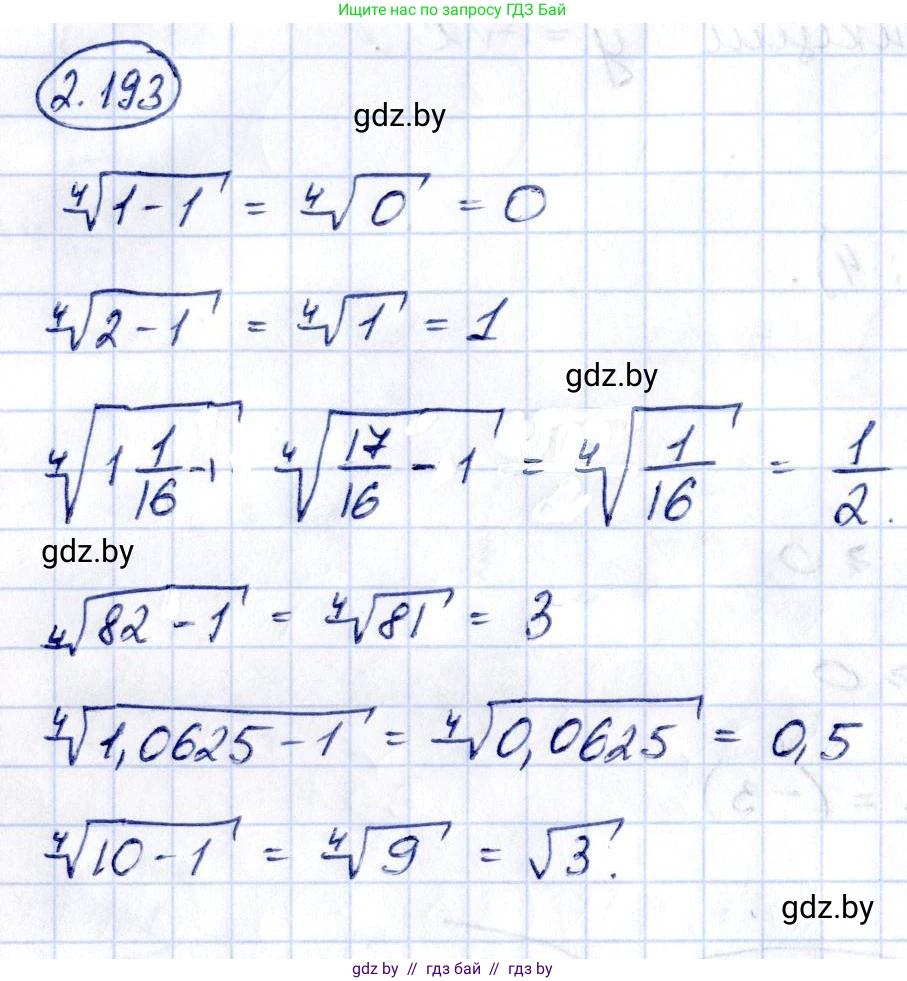 Ищите нас по запросу ГДЗ Бай
2.193
gdz.by
⁴√(1-1) = ⁴√0 = 0
⁴√(2-1) = ⁴√1 = 1
gdz.by
⁴√(1 1/16 - 1) ⁴√(17/16 - 1) = ⁴√(1/16) = 1/2.
gdz.by
⁴√(82-1) = ⁴√81 = 3
⁴√(1,0625-1) = ⁴√0,0625 = 0,5
⁴√(10-1) = ⁴√9 = √3.
gdz.by
gdz.by // гдз бай // гдз by